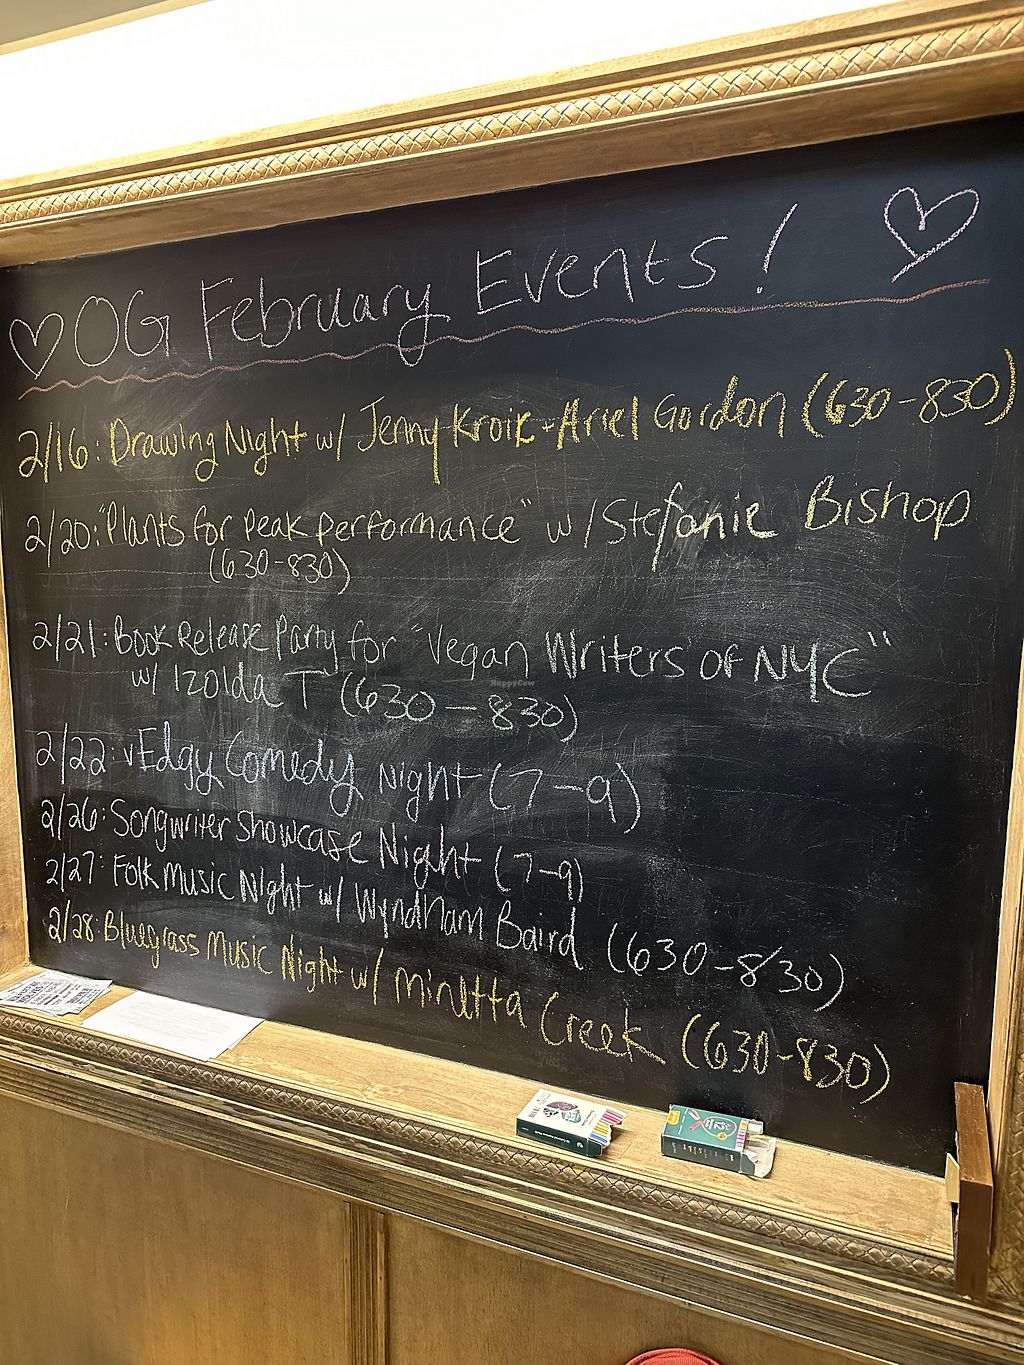 OG February Events!
2/16: Drawing Night w/ Jenny Kroik + Ariel Gordon (630-830)
2/20: "Plants for Peak Performance" w/ Stefanie Bishop
(630-830)
2/21: Book Release Party for "Vegan Writers of NYC"
w/ Izolda T (630-830)
2/22: vEdgy Comedy Night (7-9)
2/26: Songwriter Showcase Night (7-9)
2/27: Folk Music Night w/ Wyndham Baird (630-830)
2/28: Bluegrass Music Night w/ Minetta Creek (630-830)
HappyCow